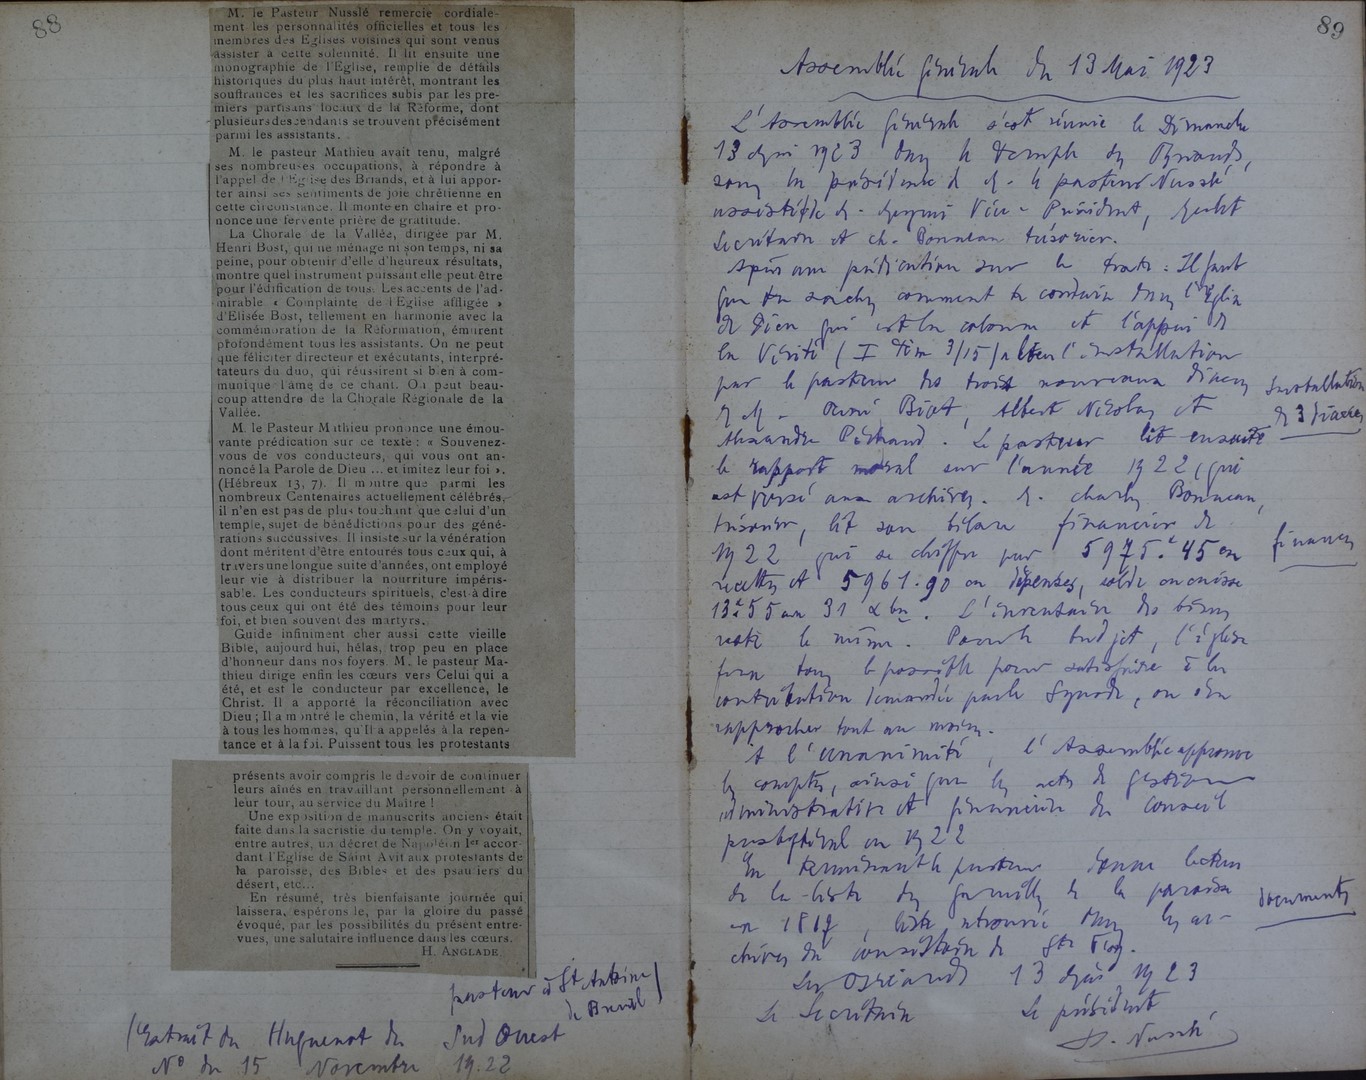 88
M. le Pasteur Nusslé remercie cordiale-
ment les personnalités officielles et tous les
membres des Eglises voisines qui sont venus
assister à cette solennité. Il lit ensuite une
monographie de l'Eglise, remplie de détails
historiques du plus haut intérêt, montrant les
souffrances et les sacrifices subis par les pre-
miers partisans locaux de la Réforme, dont
plusieurs descendants se trouvent précisément
parmi les assistants.
M. le pasteur Mathieu avait tenu, malgré
ses nombreuses occupations, à répondre à
l'appel de l'Eglise des Briands, et à lui appor-
ter ainsi ses sentiments de joie chrétienne en
cette circonstance. Il monte en chaire et pro-
nonce une fervente prière de gratitude.
La Chorale de la Vallée, dirigée par M.
Henri Bost, qui ne ménage ni son temps, ni sa
peine, pour obtenir d'elle d'heureux résultats,
montre quel instrument puissant elle peut être
pour l'édification de tous. Les accents de l'ad-
mirable « Complainte de l'Eglise affligée »
d'Elisée Bost, tellement en harmonie avec la
commémoration de la Réformation, émurent
profondément tous les assistants. On ne peut
que féliciter directeur et exécutants, interpré-
tateurs du duo, qui réussirent si bien à com-
munique l'âme de ce chant. On peut beau-
coup attendre de la Chorale Régionale de la
Vallée.
M. le Pasteur Mathieu prononce une émou-
vante prédication sur ce texte : « Souvenez-
vous de vos conducteurs, qui vous ont an-
noncé la Parole de Dieu ... et imitez leur foi ».
(Hébreux 13, 7). Il montre que parmi les
nombreux Centenaires actuellement célébrés,
il n'en est pas de plus touchant que celui d'un
temple, sujet de bénédictions pour des géné-
rations successives. Il insiste sur la vénération
dont méritent d'être entourés tous ceux qui, à
travers une longue suite d'années, ont employé
leur vie à distribuer la nourriture impéris-
sable. Les conducteurs spirituels, c'est-à dire
tous ceux qui ont été des témoins pour leur
foi, et bien souvent des martyrs.
Guide infiniment cher aussi cette vieille
Bible, aujourd hui, hélas, trop peu en place
d'honneur dans nos foyers. M. le pasteur Ma-
thieu dirige enfin les cœurs vers Celui qui a
été, et est le conducteur par excellence, le
Christ. Il a apporté la réconciliation avec
Dieu ; Il a montré le chemin, la vérité et la vie
à tous les hommes, qu'Il a appelés à la repen-
tance et à la foi. Puissent tous les protestants
présents avoir compris le devoir de continuer
leurs aînés en travaillant personnellement à
leur tour, au service du Maître !
Une exposition de manuscrits anciens était
faite dans la sacristie du temple. On y voyait,
entre autres, un décret de Napoléon Ier accor-
dant l'Eglise de Saint Avit aux protestants de
la paroisse, des Bibles et des psautiers du
désert, etc...
En résumé, très bienfaisante journée qui
laissera, espérons le, par la gloire du passé
évoqué, par les possibilités du présent entre-
vues, une salutaire influence dans les cœurs.
H. ANGLADE
pasteur à St Antoine
de Breuil)
(Extrait du Huguenot du Sud Ouest
No du 15 Novembre 1922
89
Assemblée générale du 13 Mai 1923
L'Assemblée générale s'est réunie le Dimanche
13 Mai 1923 dans le temple des Briands,
sous la présidence de M. le pasteur Nusslé,
assisté de M. Vice-Président,
Secrétaire et Ch. Bonneau trésorier.
Après une prédication sur le texte : Il faut
que tu saches comment te conduire dans l'Eglise
de Dieu qui est la colonne et l'appui de
la Vérité (I Tim 3/15) a lieu l'installation
par le pasteur des trois nouveaux diacres
M M. René Biat, Albert Nicolas et
Alexandre. Le pasteur lit ensuite
le rapport moral sur l'année 1922, qui
est versé aux archives. M. Charly Bonneau,
trésorier, lit son bilan financier de
1922 qui se chiffre par 5975.45 en
recettes et 5961.90 en dépenses, solde en caisse
13.55 au 31 Xbre. L'inventaire des biens
reste le même. Pour le budjet, l'église
fera tout le possible pour satisfaire à la
contribution demandée par le Synode, ou s'en
rapprocher tout au moins.
A l'unanimité, l'Assemblée approuve
les comptes, ainsi que les actes de gestion
administrative et financière du Conseil
presbytéral en 1922
En terminant le pasteur donne lecture
de la liste des familles de la paroisse
en 1817, liste retrouvée dans les ar-
chives du consistoire de Ste Foy.
Les Briands 13 Mai 1923
Le Secrétaire
Le président
Nusslé
Installation
de 3 diacres
finances
documents